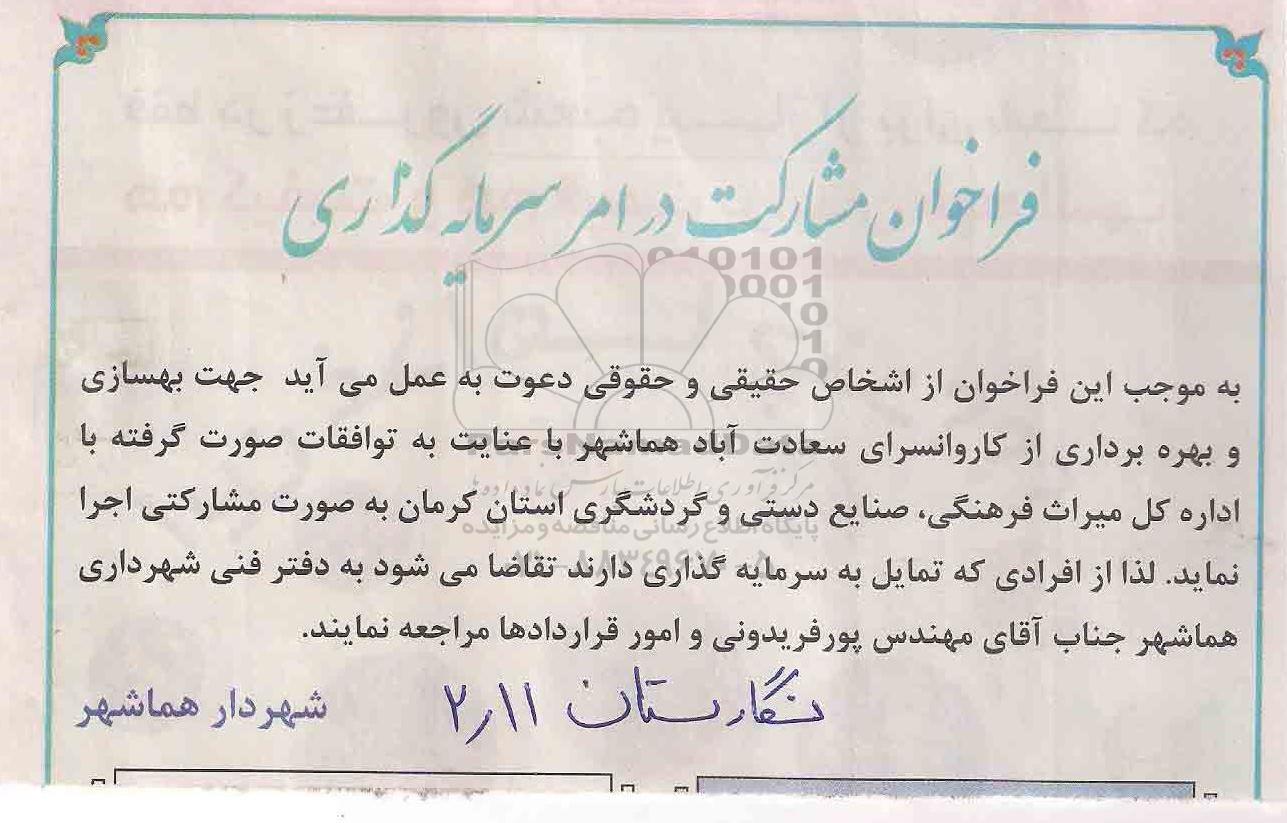 فراخوان مشارکت در امر سرمایه گذاری
به موجب این فراخوان از اشخاص حقیقی و حقوقی دعوت به عمل می آید جهت بهسازی
و بهره برداری از کاروانسرای سعادت آباد هماشهر با عنایت به توافقات صورت گرفته با
اداره کل میراث فرهنگی، صنایع دستی و گردشگری استان کرمان به صورت مشارکتی اجرا
نماید. لذا از افرادی که تمایل به سرمایه گذاری دارند تقاضا می شود به دفتر فنی شهرداری
هماشهر جناب آقای مهندس پورفریدونی و امور قراردادها مراجعه نمایند.
نگارستان ۲٫۱۱
شهردار هماشهر
پایگاه اطلاع رسانی مناقصه و مزایده